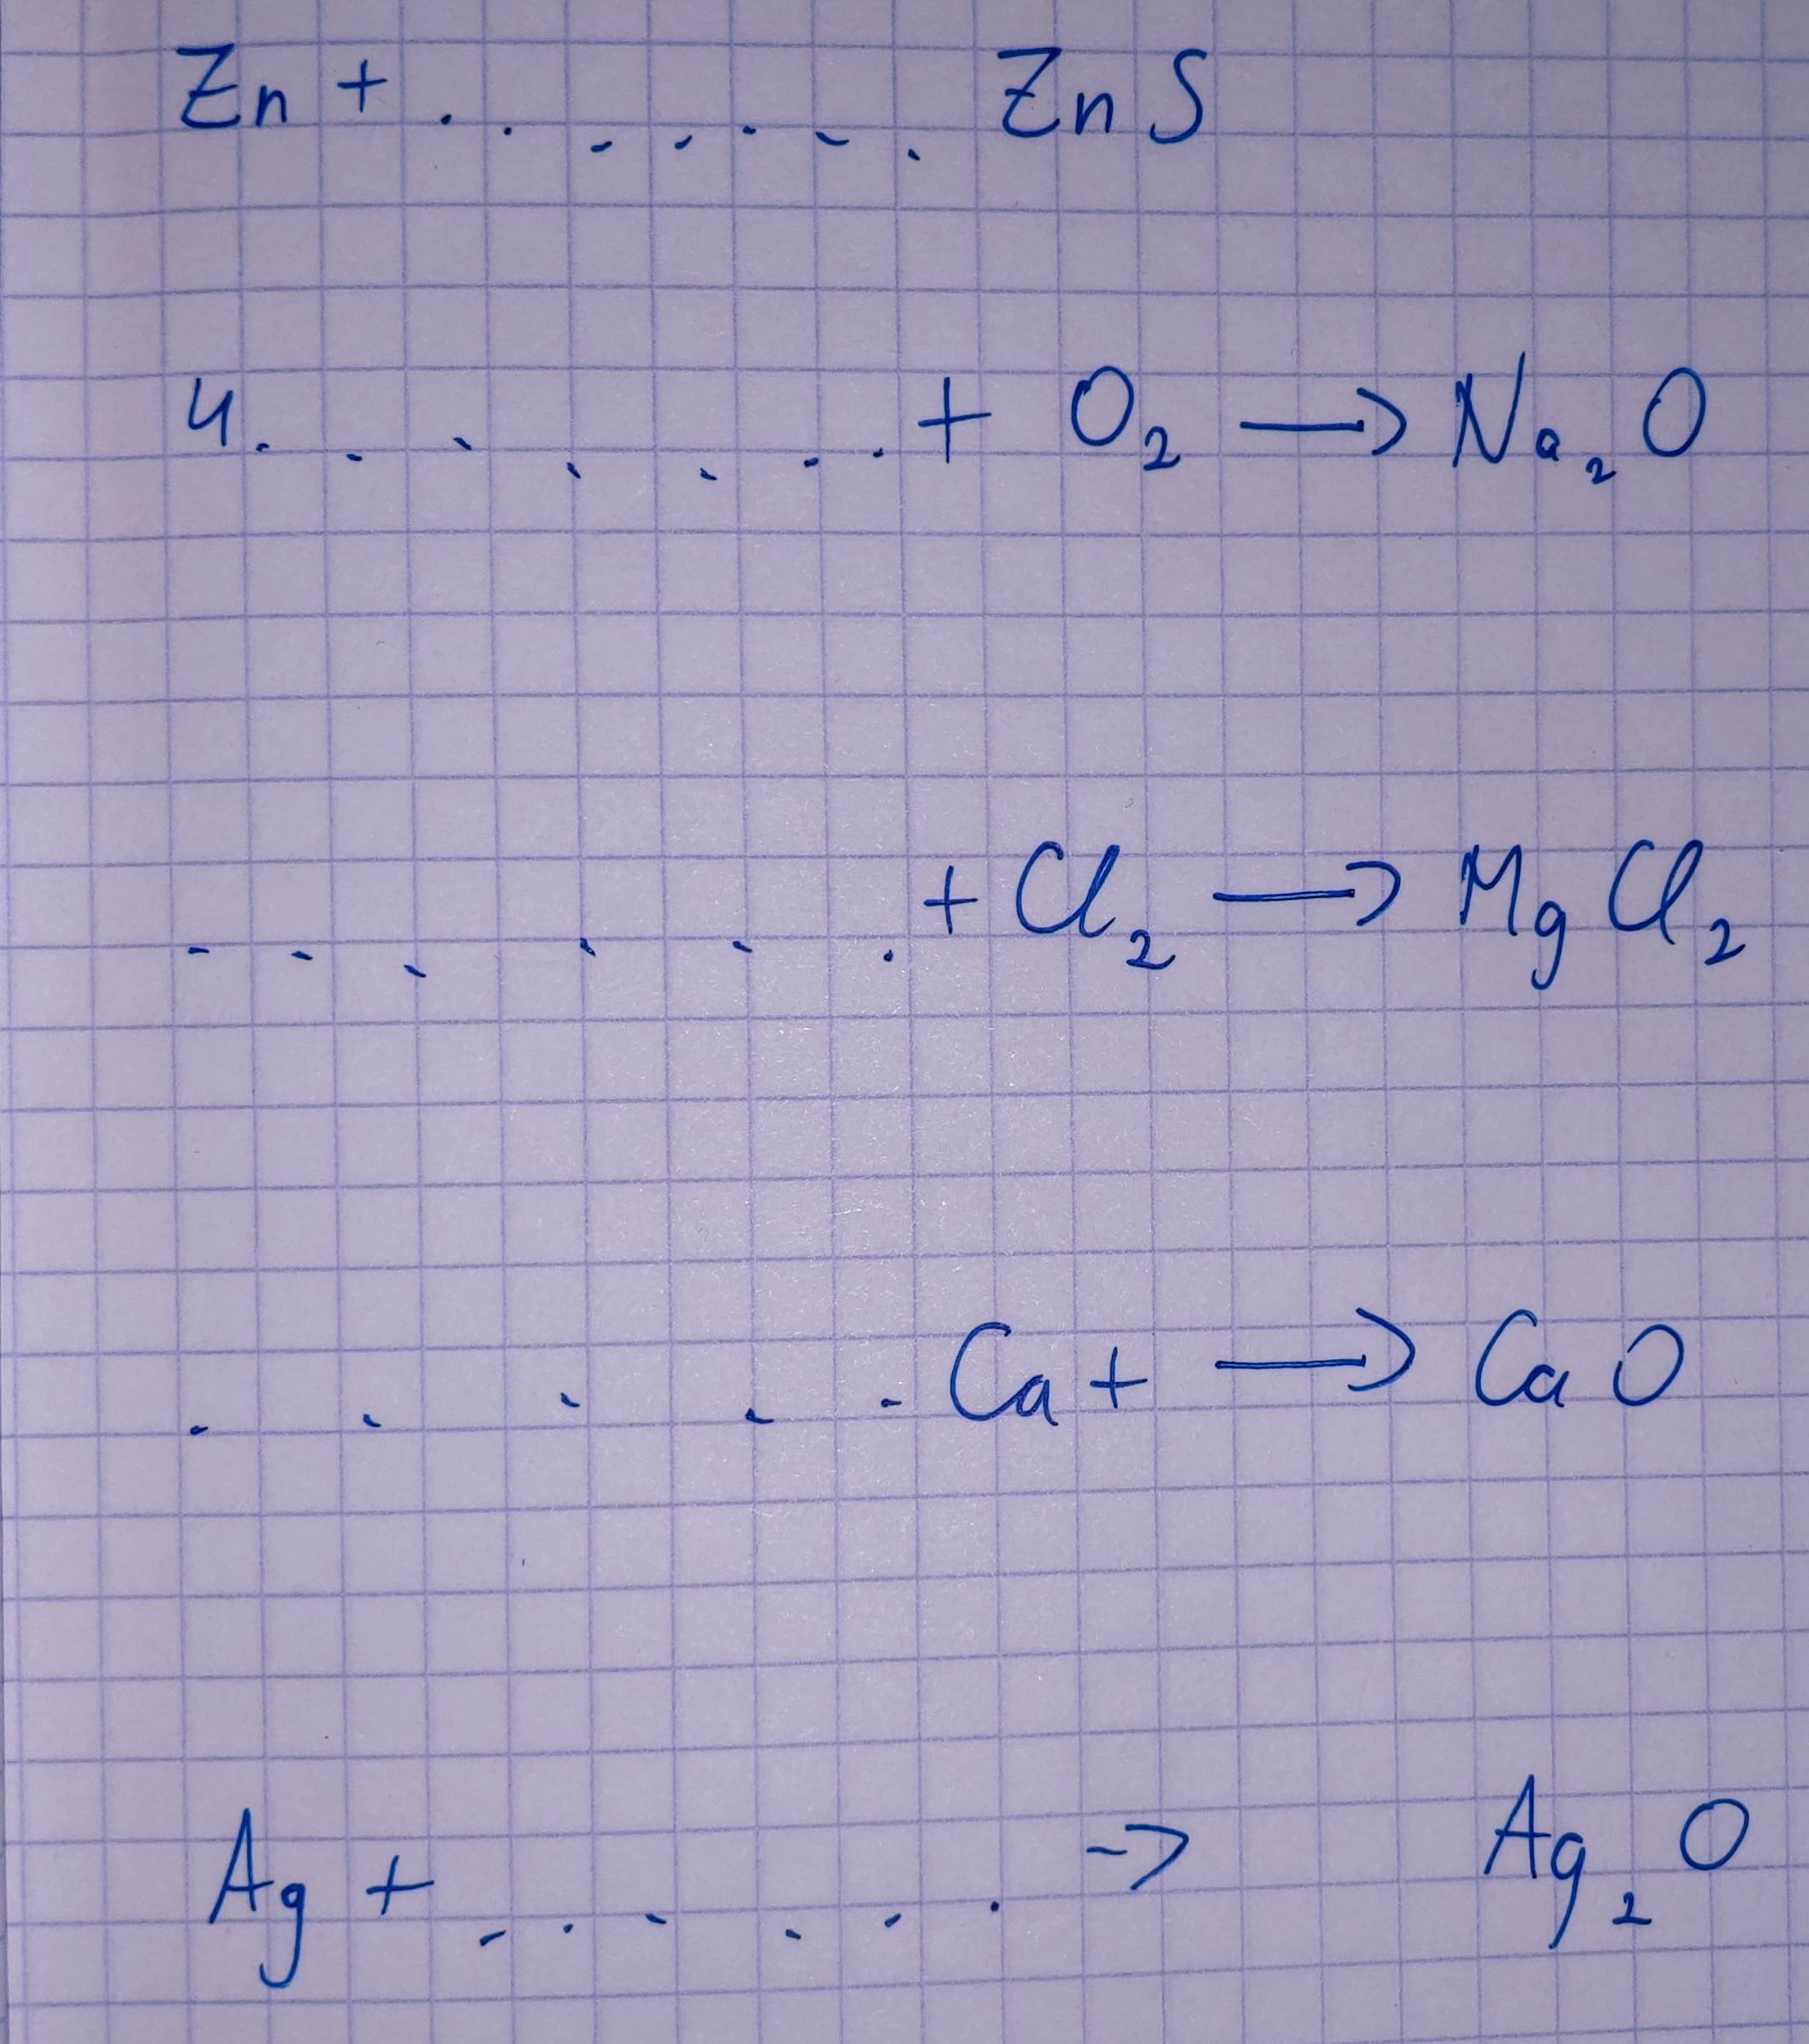 Zn + ....... ZnS
4....... + O₂ → Na₂O
...... + Cl₂ → MgCl₂
..... Ca + → CaO
Ag + ...... → Ag₂O